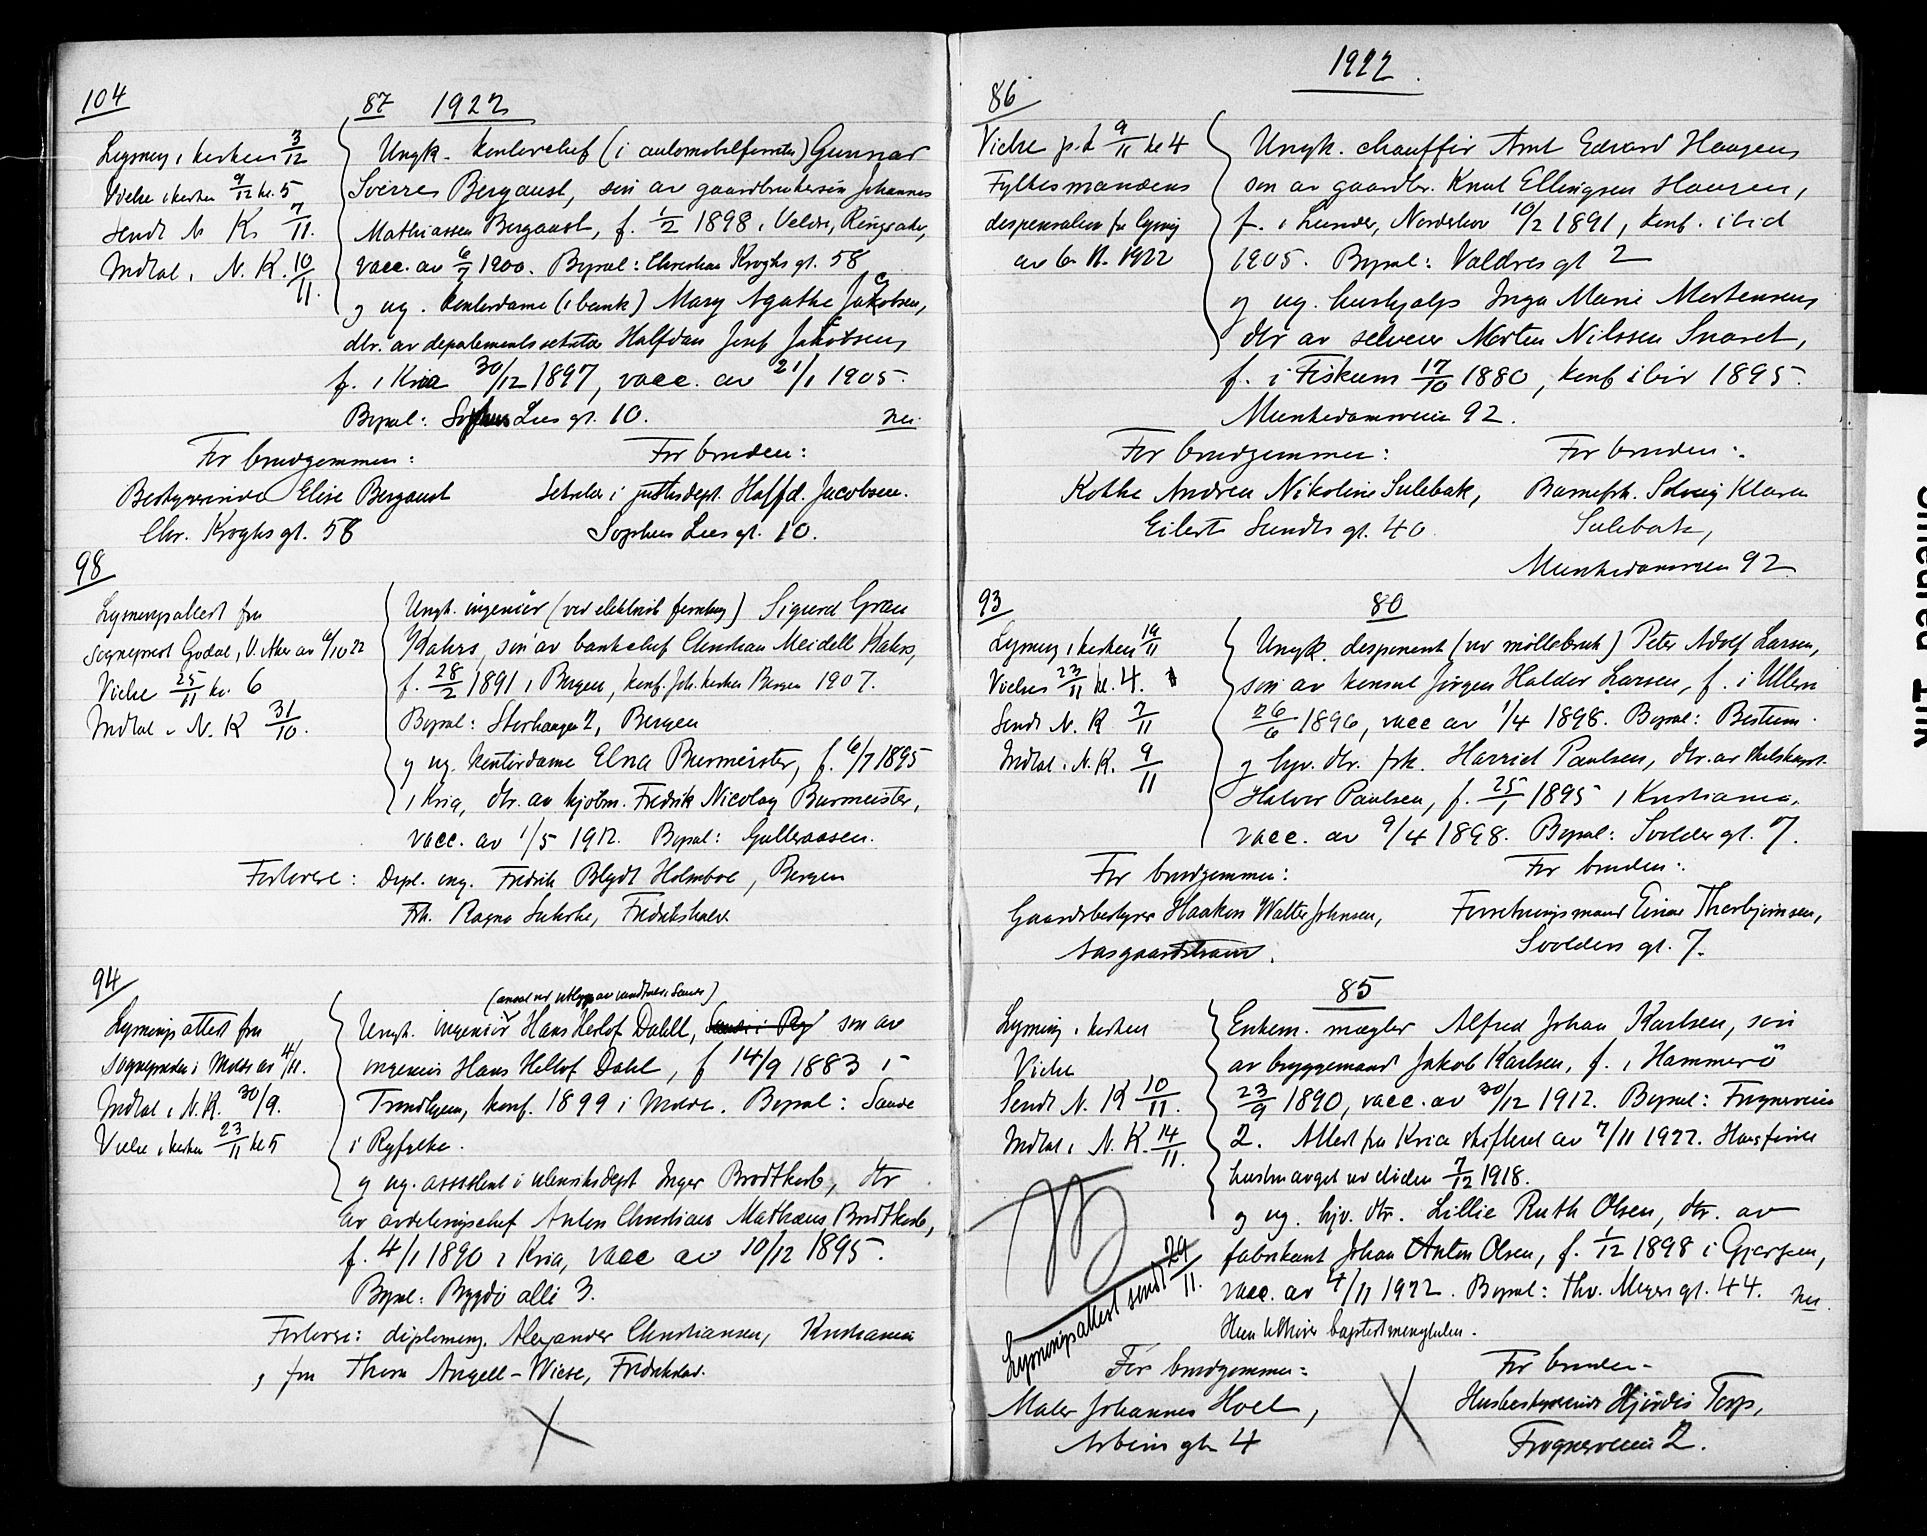 104
87 1922
Lysning i kirken 3/12
Vielse i kirken 9/12 kl. 5
Sendt N. K. 7/11.
Indtat i N. K. 10/11.
Ungk. kontorchef (i automobilforretn.) Gunnar
Sverres Bergaust, søn av gaardbrukersøn Johannes
Mathiassen Bergaust, f. 1/2 1898 i Veldre, Ringsaker,
vacc. av 6/7 1900. Bopæl: Christian Kroghs gt. 58
og ug. kontordame (i bank) Mary Agathe Jacobsen,
dtr. av departementssekretær Halfdan Josef Jacobsen,
f. i Kria 30/12 1897, vacc. av 21/1 1905.
Bopæl: Sophus Lies gt. 10.
nei
For brudgommen:
For bruden:
Bestyrerinde Elise Bergaust
Chr. Kroghs gt. 58
Sekretær i justisdept. Halfd. Jacobsen.
Sophus Lies gt. 10.
98
Lysningsattest fra
sogneprest Godal, V. Aker av 6/10 22
Vielse 25/11 kl. 6
Indtat i N. K. 31/10.
Ungk. ingeniør (ved elektrisk forretning) Sigurd Gran
Kahrs, søn av bankchef Christian Meidell Kahrs,
f. 28/2 1891 i Bergen, konf. Joh. kirken Bergen 1907.
Bopæl: Storhaugen 2, Bergen
og ug. kontordame Elna Burmeister, f. 6/7 1895
i Kria, dtr. av kjøbm. Fredrik Nicolay Burmeister,
vacc. av 1/5 1912. Bopæl: Gulleraasen.
Forlovere: Dipl. ing. Fredrik Blydt Holmboe, Bergen
Frk. Ragna Fredrikshald
94
Lysningsattest fra
sognepresten i Molde av 4/11.
Indtat i N. K. 30/9.
Vielse i kirken 23/11 kl 5
Ungk. ingeniør Hans Herlof Dahl, søn av
ingeniør Hans Herlof Dahl, f 14/9 1883 i
Trondhjem, konf. 1899 i Molde. Bopæl: Sande
i Ryfylke.
og ug. assistent i utenriksdept Inger Brodtkorb, dtr
av avdelingschef Anton Christian Mathæus Brodtkorb,
f. 4/1 1890 i Kria, vacc av 10/12 1895.
Bopæl: Bygdø allé 3.
Forlovere: diploming. Alexander Christiansen, Kristiania
fru Thora Angell-Wiese, Fredrikstad.
1922.
86
Vielse p.t. 9/11 kl 4
Fylkesmandens
dispensation fra lysning
av 6. 11. 1922
Ungk. chauffør Arnt Edvard Haugen,
søn av gaardbr. Knut Ellingsen Haugen,
f. i Lunder, Norderhov 10/2 1891, konf. ibid
1905. Bopæl: Valdres gt 2
og ug. hushjælp Inga Marie Mortensen,
dtr av selveier Morten Nilssen Snaret,
f. i Fiskum 17/10 1880, konf ibid 1895.
Munkedamsveien 92.
For brudgommen:
For bruden:
Kokke Andrea Nikoline Sulebak,
Eilert Sundts gt. 40
Barnefrk. Solveig Klara
Sulebak,
Munkedamsveien 92
93
80
Lysning i kirken 19/11
Vielse 23/11 kl. 4.
Sendt N. K 7/11
Indtat i N. K. 9/11
Ungk. disponent (ved møllebruk) Peter Adolf Larsen,
søn av konsul Jørgen Halder Larsen, f. i Ullern
26/6 1896, vacc av 1/4 1898. Bopæl: Bestum.
og hjv. dtr. frk. Harriet Paulsen, dtr. av skibskapt.
Halvor Paulsen, f. 25/1 1895 i Kristiania,
vacc. av 9/4 1898. Bopæl: Svolder gt. 7.
For brudgommen:
For bruden:
Gaardsbestyrer Haakon Walter Johnsen,
Aasgaardstrand.
Forretningsmand Einar Thorbjørnsen,
Svolders gt. 7.
85
Lysning i kirken
Vielse
Sendt N. K 10/11.
Indtat i N. K. 14/11.
Enkem. mægler Alfred Johan Karlsen, søn
av bryggemand Jakob Karlsen, f. i Hammerö
23/9 1890, vacc. av 30/12 1912. Bopæl: Frognerveien
2. Attest fra Kria skifteret av 7/11 1922. Hans første
hustru avgik ved døden 7/12 1918.
og ug. hjv. dtr. Lillie Ruth Olsen, dtr. av
fabrikant Johan Anton Olsen, f. 1/12 1898 i Gjerpen,
vacc. av 4/11 1922. Bopæl: Thv. Meyers gt. 44. nei.
Hun tilhører baptistmenigheten.
Lysningsattest sendt 29/11.
For brudgommen:
For bruden-
Maler Johannes Hoel,
Arbins gt 4
Husbestyrerinde Hjørdis Torp,
Frognerveien 2.